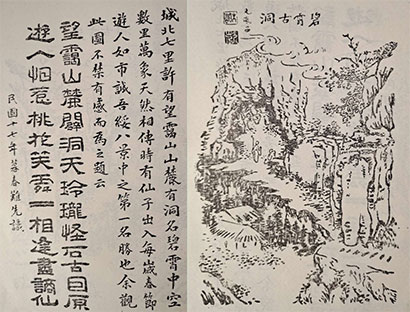 碧霄古洞
城北七里許有望靄山山麓有洞名碧霄中空
數里萬象天然相傳時有仙子出入每歲春節
遊人如市誠吾綏八景中之第一名勝也余觀
此圖不禁有感而為之題云
望靄山麓闢洞天玲瓏怪石古田原
遊人怕惹桃花笑一相逢盡謫仙
民國十七年春